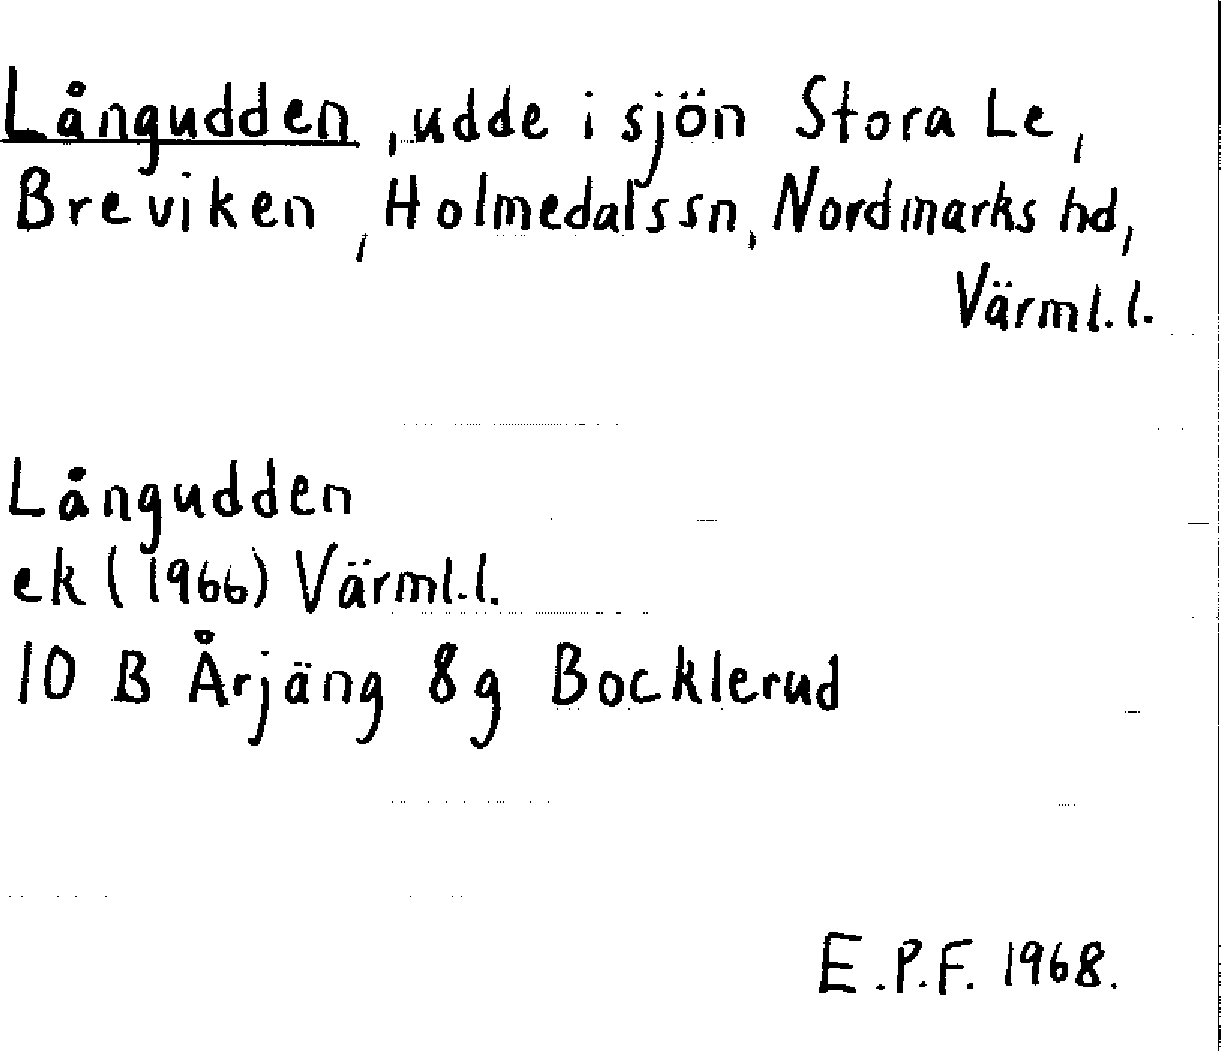 Långudden, udde i sjön Stora Le,
Breviken, Holmedals sn, Nordmarks hd,
Värml. l.
Långudden
ek (1966) Värml. l.
10 B Årjäng 8g Bocklerud
E.P.F. 1968.